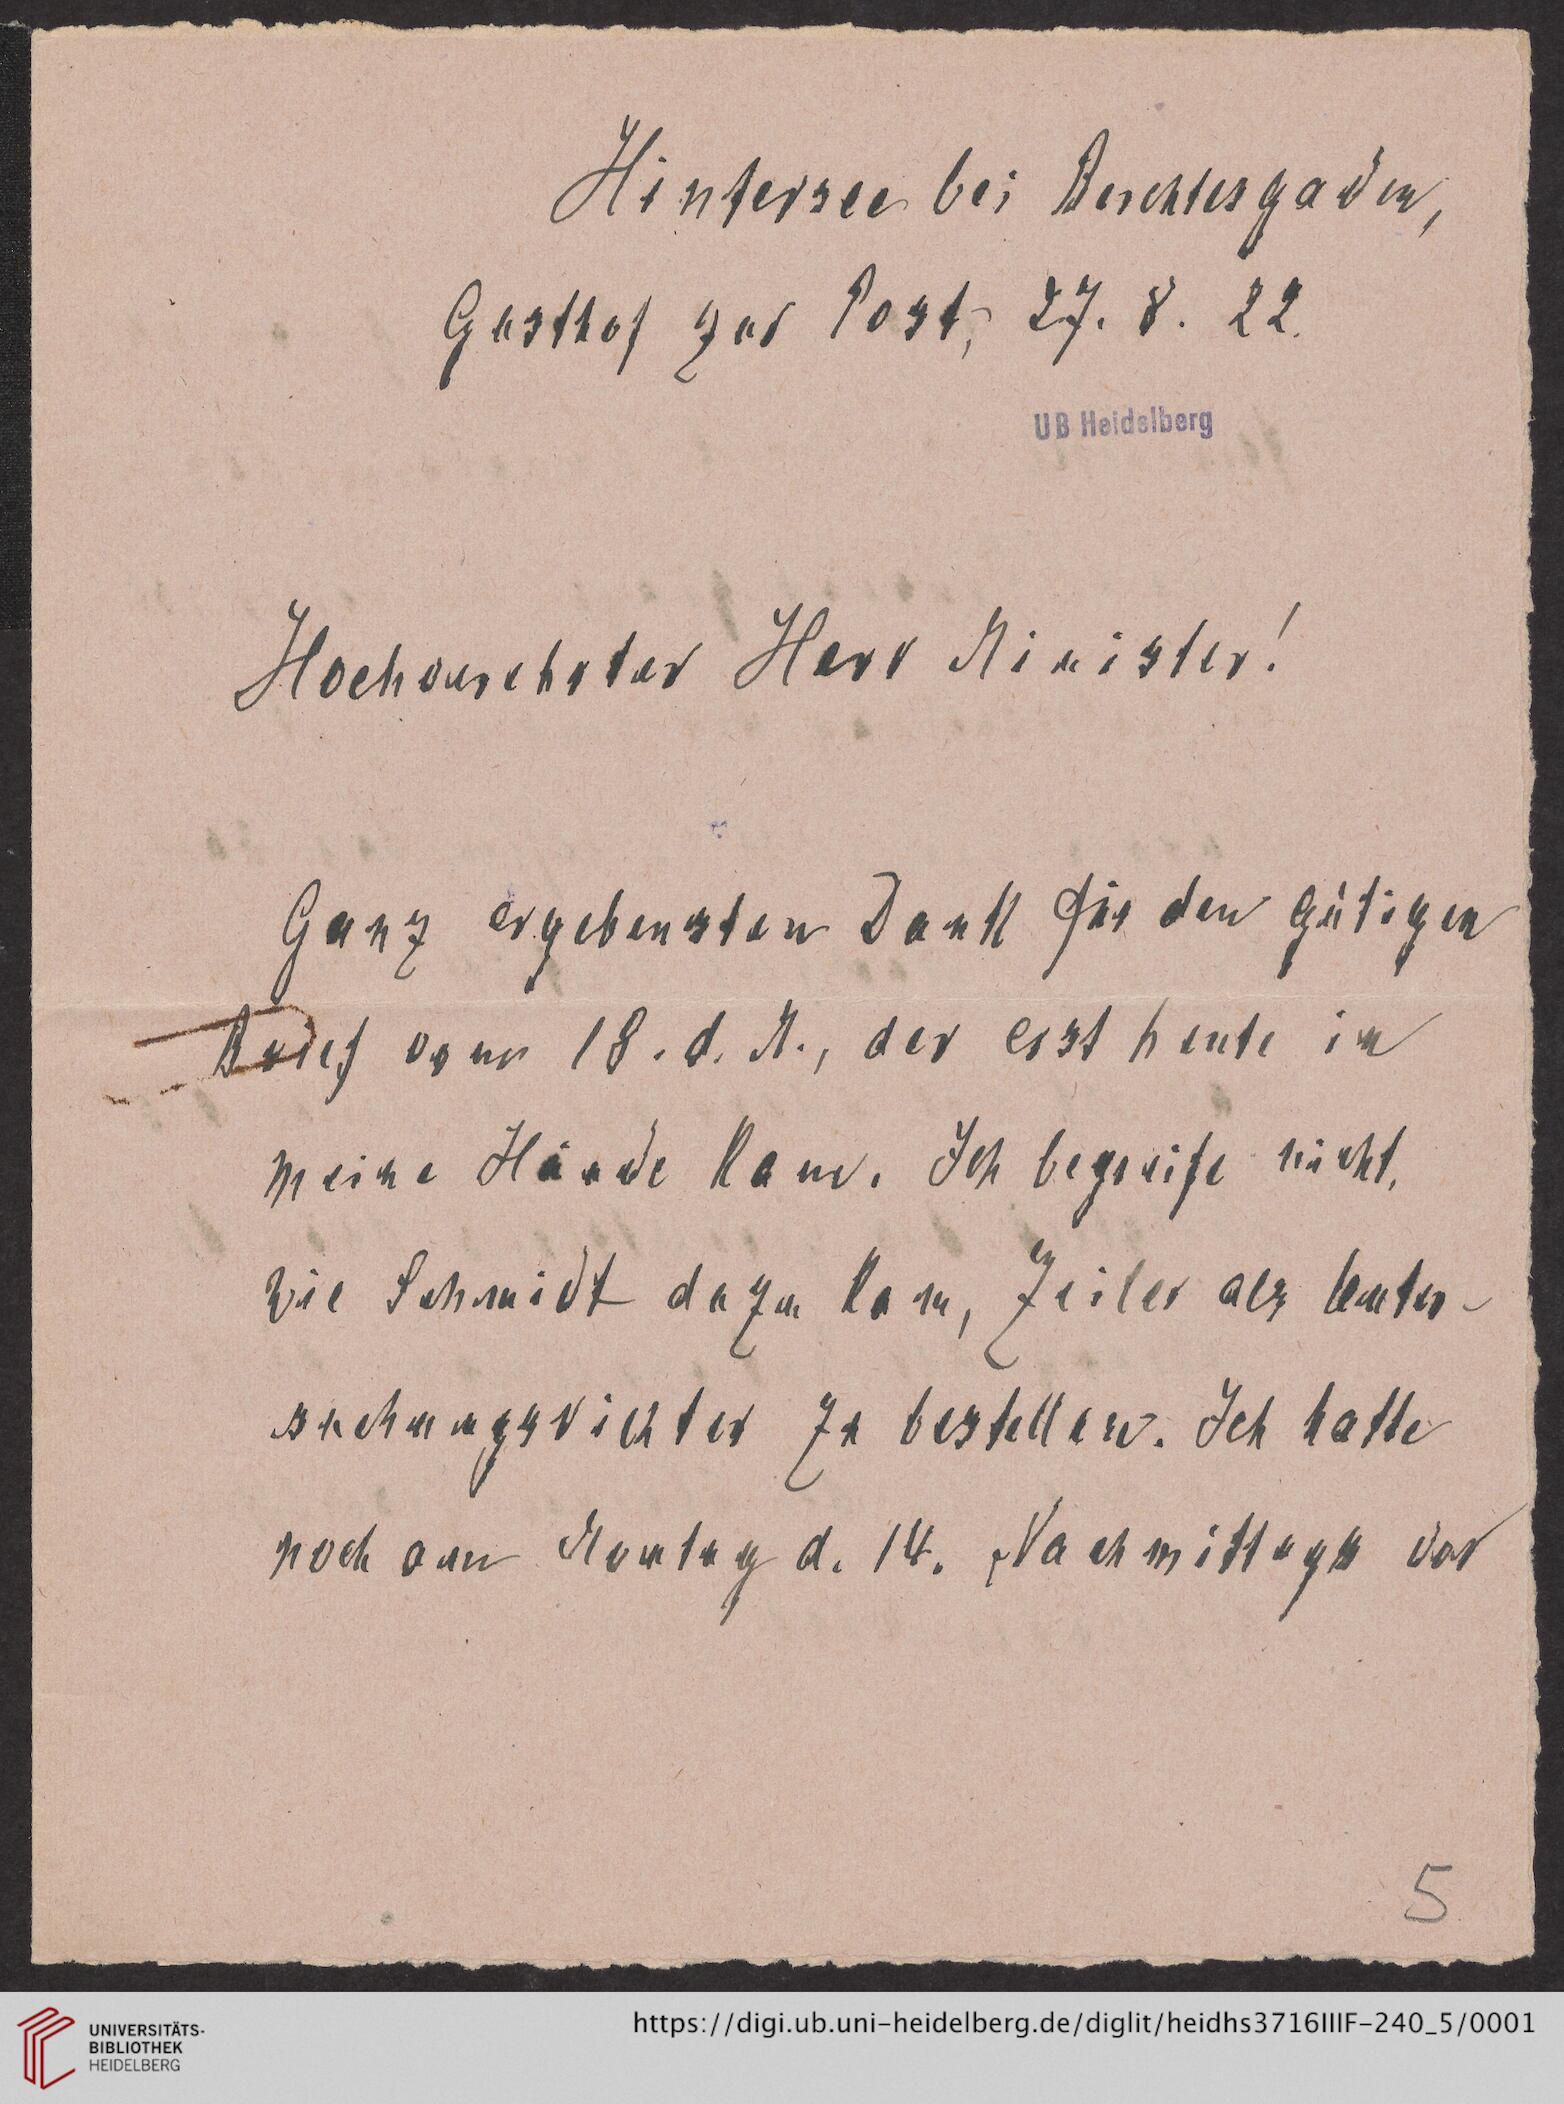 Hintersee bei Berchtesgaden,
Gasthof zur Post, 27. 8. 22.
UB Heidelberg
Hochverehrter Herr Minister!
Ganz ergebensten Dank für den gütigen
Brief vom 18. d. M., der erst heute in
meine Hände kam. Ich begreife nicht,
wie Schmidt dazu kam, Zeiler als Unter-
suchungsrichter zu bestellen. Ich hatte
noch am Montag d. 14. Nachmittags vor
5
UNIVERSITÄTS-
BIBLIOTHEK
HEIDELBERG
https://digi.ub.uni-heidelberg.de/diglit/heidhs3716IIIF-240_5/0001